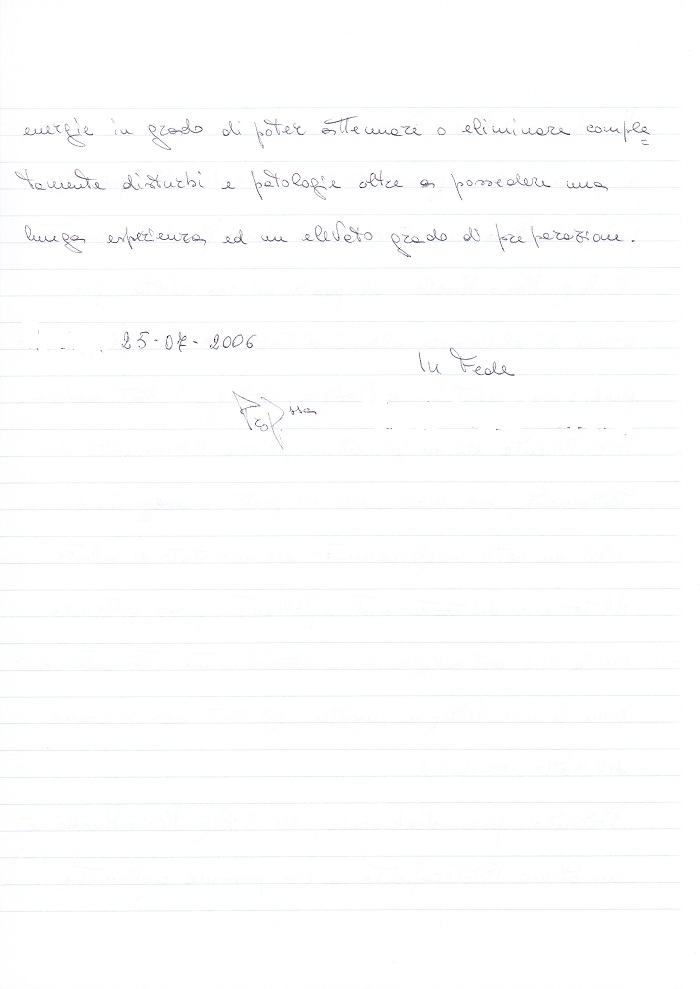 energie in grado di poter attenuare o eliminare comple=
tamente disturbi e patologie oltre a possedere una
lunga esperienza ed un elevato grado di preparazione.
25-07-2006
In Fede
Prof.ssa